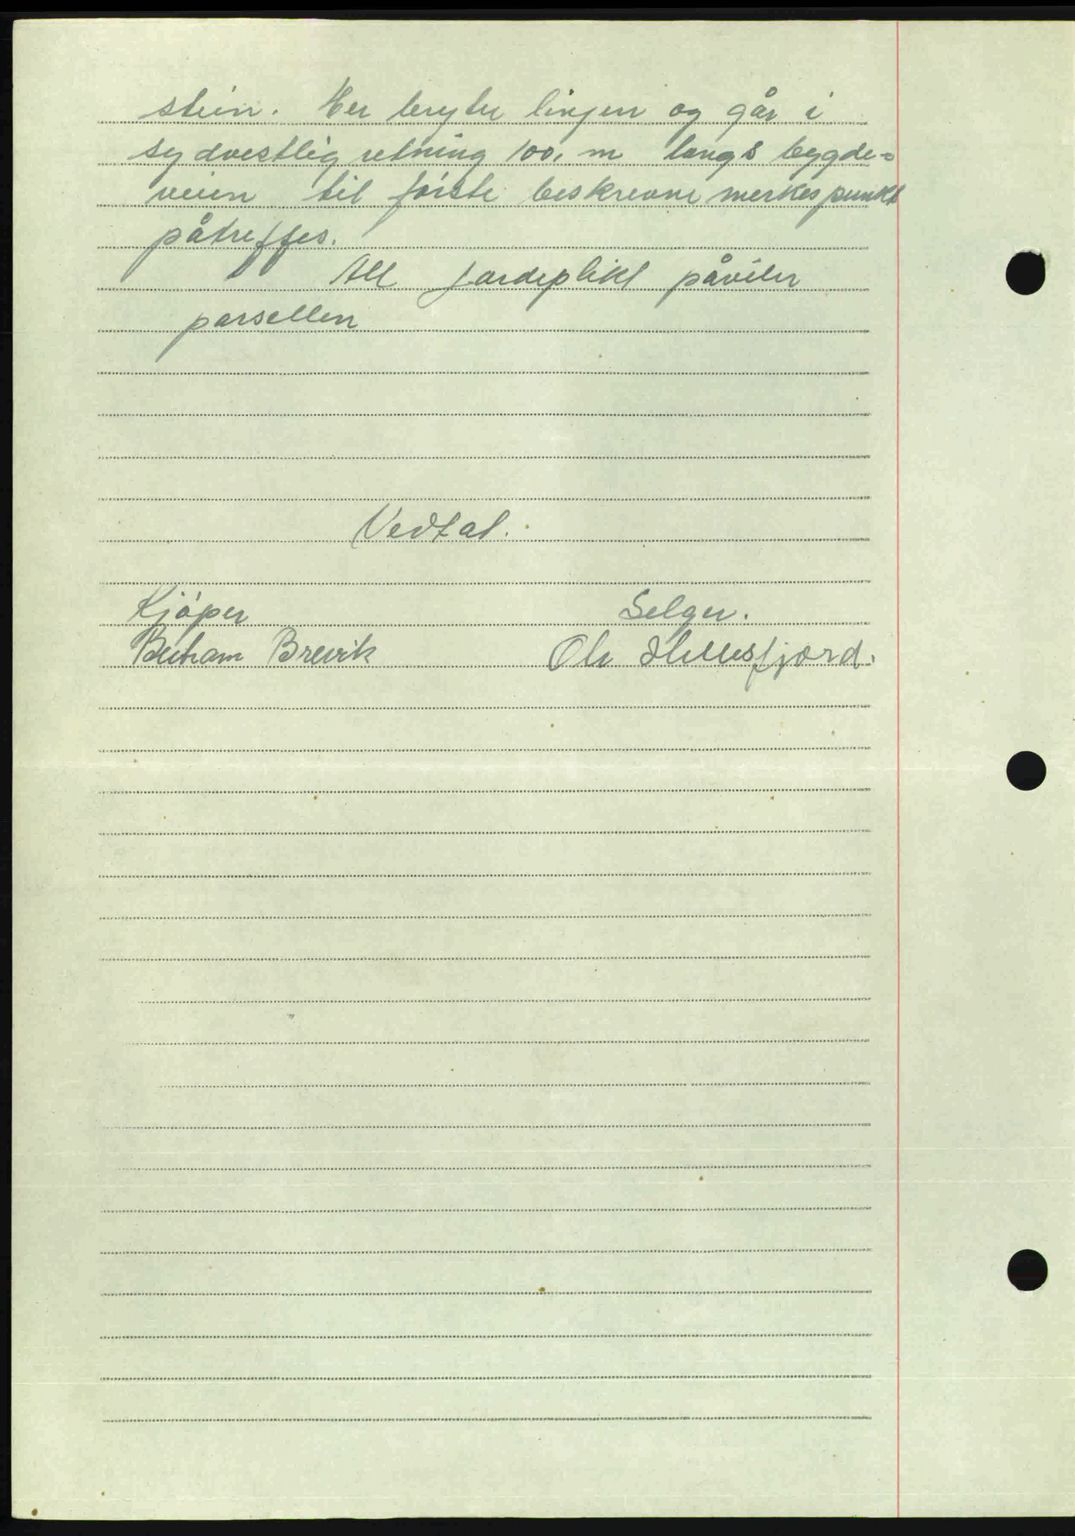 stein. Her bryter linjen og går i
sydvestlig retning 100, m langs bygde=
veien til første beskrevne merkespunkt
påtreffes.
All jordeplikt påviler
parsellen
Vedtat.
Kjøper Selger.
Brevik Ole